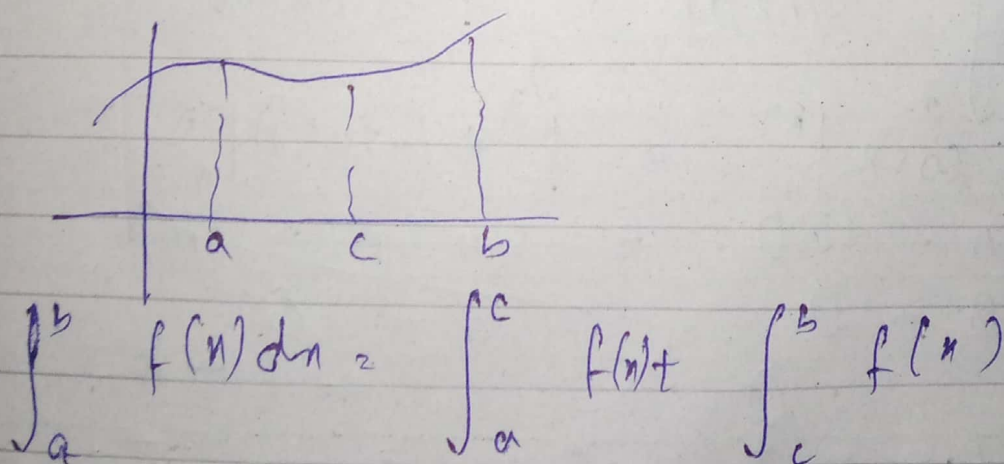 a c b
∫_a^b f(x) dx = ∫_a^c f(x) + ∫_c^b f(x)